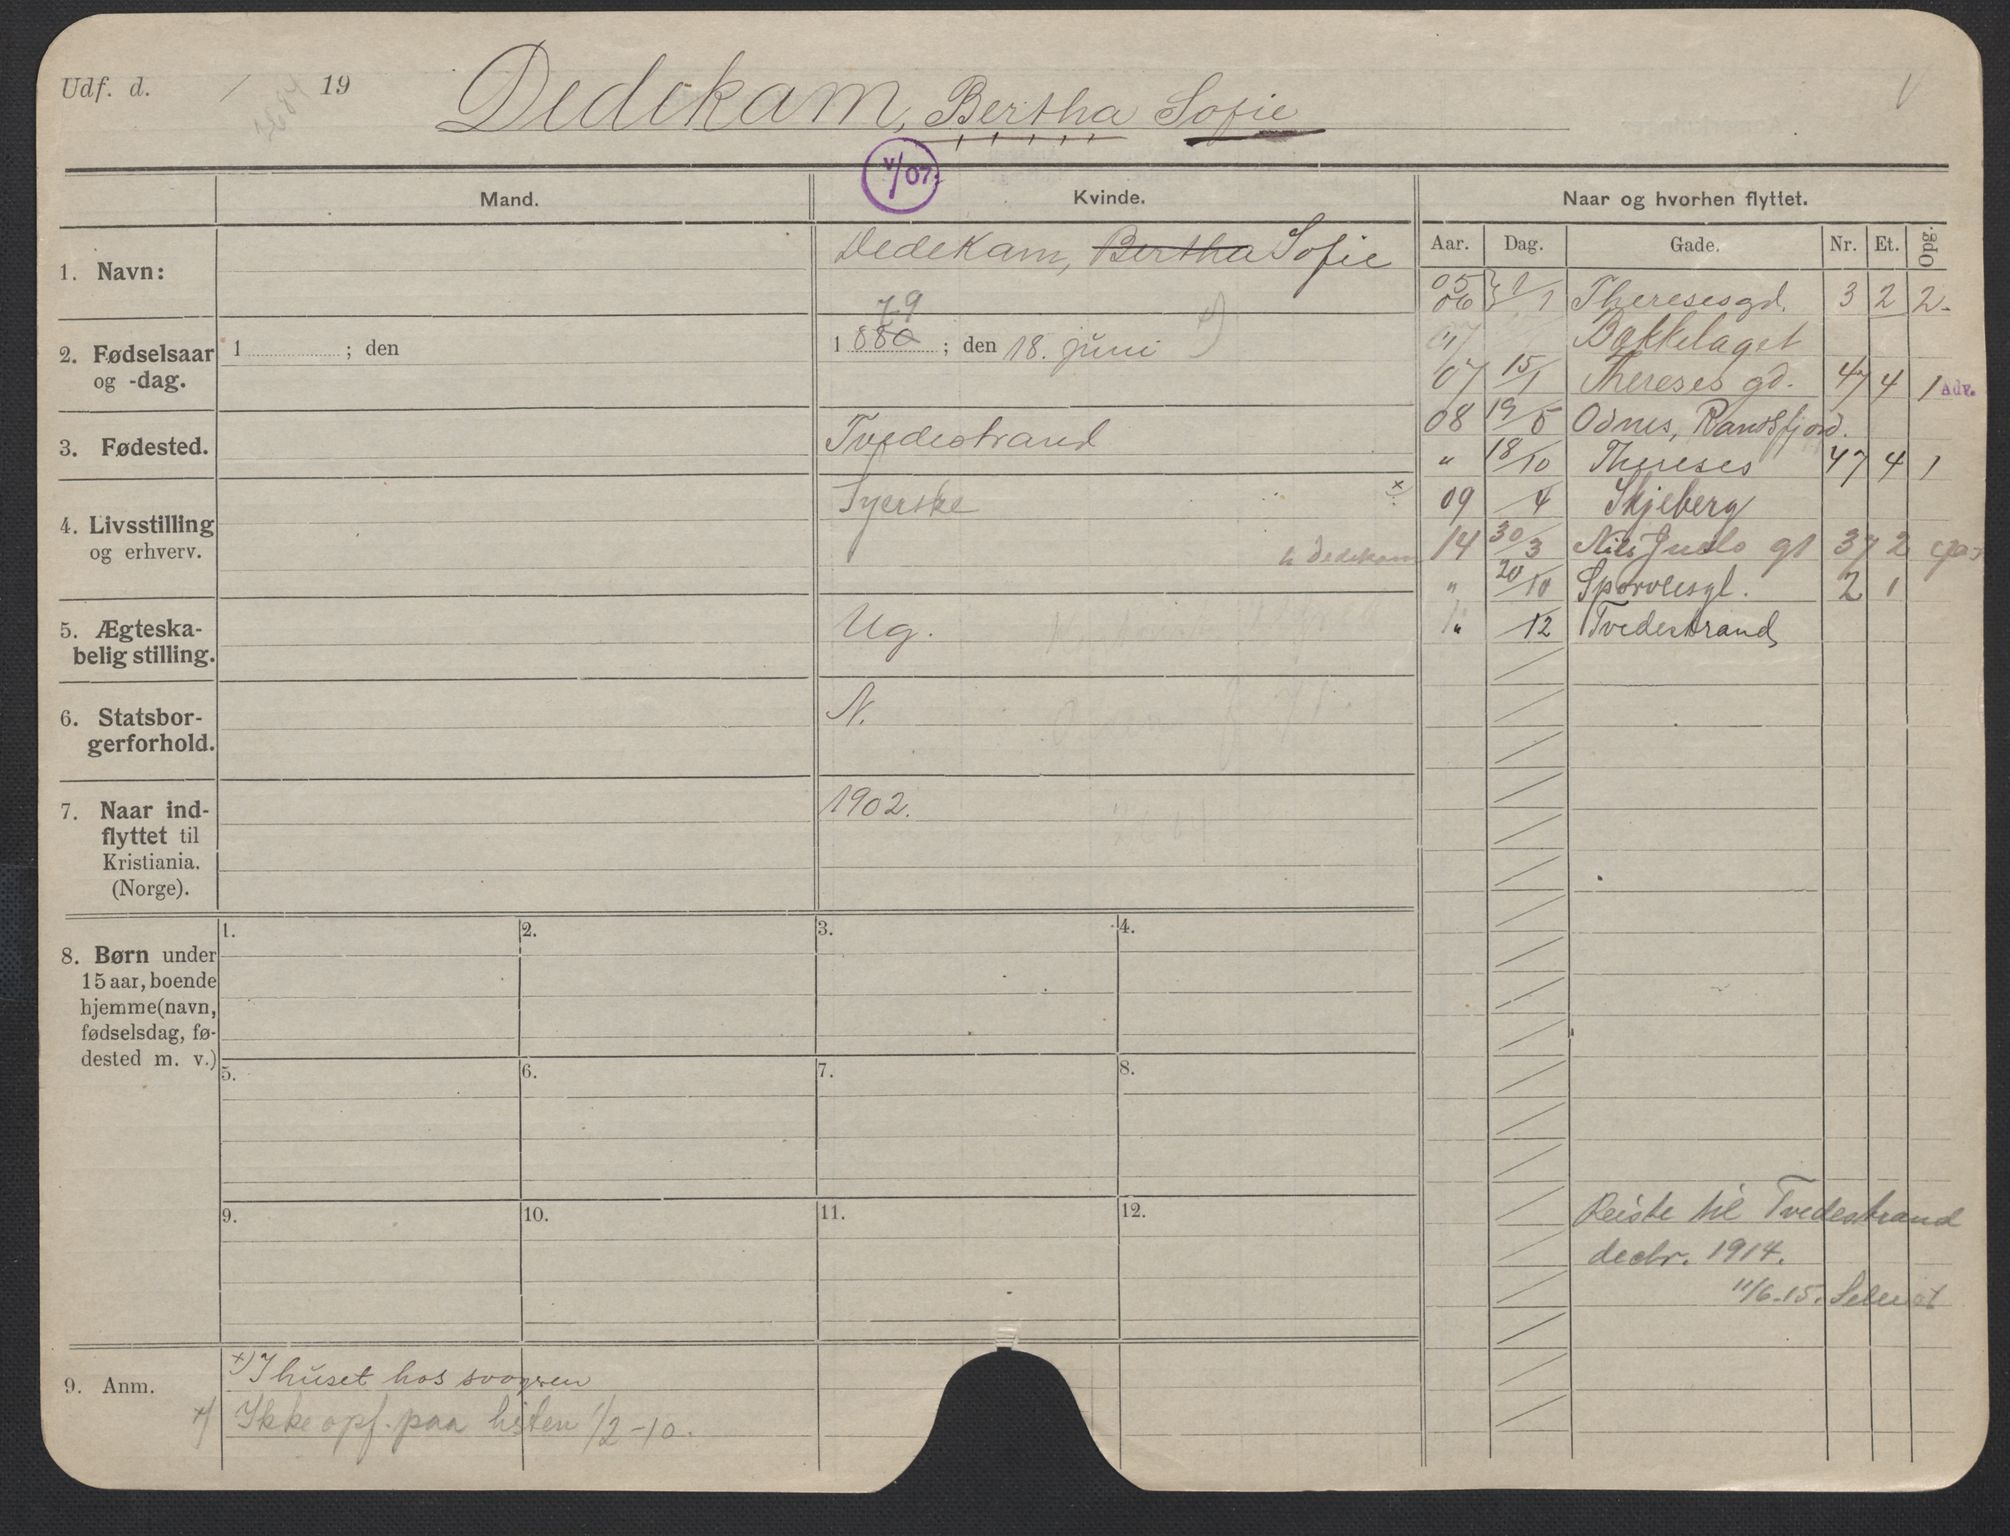 Udf. d. / 19
Dedekam, Bertha Sofie
V/07.
Mand.
Kvinde.
Naar og hvorhen flyttet.
Aar. Dag. Gade. Nr. Et. Opg.
1. Navn:
Dedekam, Bertha Sofie
05
06 } 1/1 Theresesgd. 3 2 2
07 Bakkelaget
07 15/1 Thereses gd. 47 4 1 Adv.
08 19/5 Odnes, Randsfjord.
" 18/10 Thereses 47 4 1
09 /4 Skjeberg
14 30/3 Nils Juels gt 37 2
" 20/10 Sporveisgt. 2 1
" /12 Tvedestrand
2. Fødselsaar
og -dag.
1 ; den
79
1 880 ; den 18. juni x)
3. Fødested.
Tvedestrand
4. Livsstilling
og erhverv.
Syerske x)
h Dedekam
5. Ægteska-
belig stilling.
Ug.
6. Statsbor-
gerforhold.
N.
7. Naar ind-
flyttet til
Kristiania.
(Norge).
1902.
8. Børn under
15 aar, boende
hjemme (navn,
fødselsdag, fø-
dested m. v.)
1. 2. 3. 4.
5. 6. 7. 8.
9. 10. 11. 12.
Reiste til Tvedestrand
decbr. 1914.
11/6-15.
9. Anm.
x) I huset hos svogren
x) Ikke opf. paa listen 1/2-10.